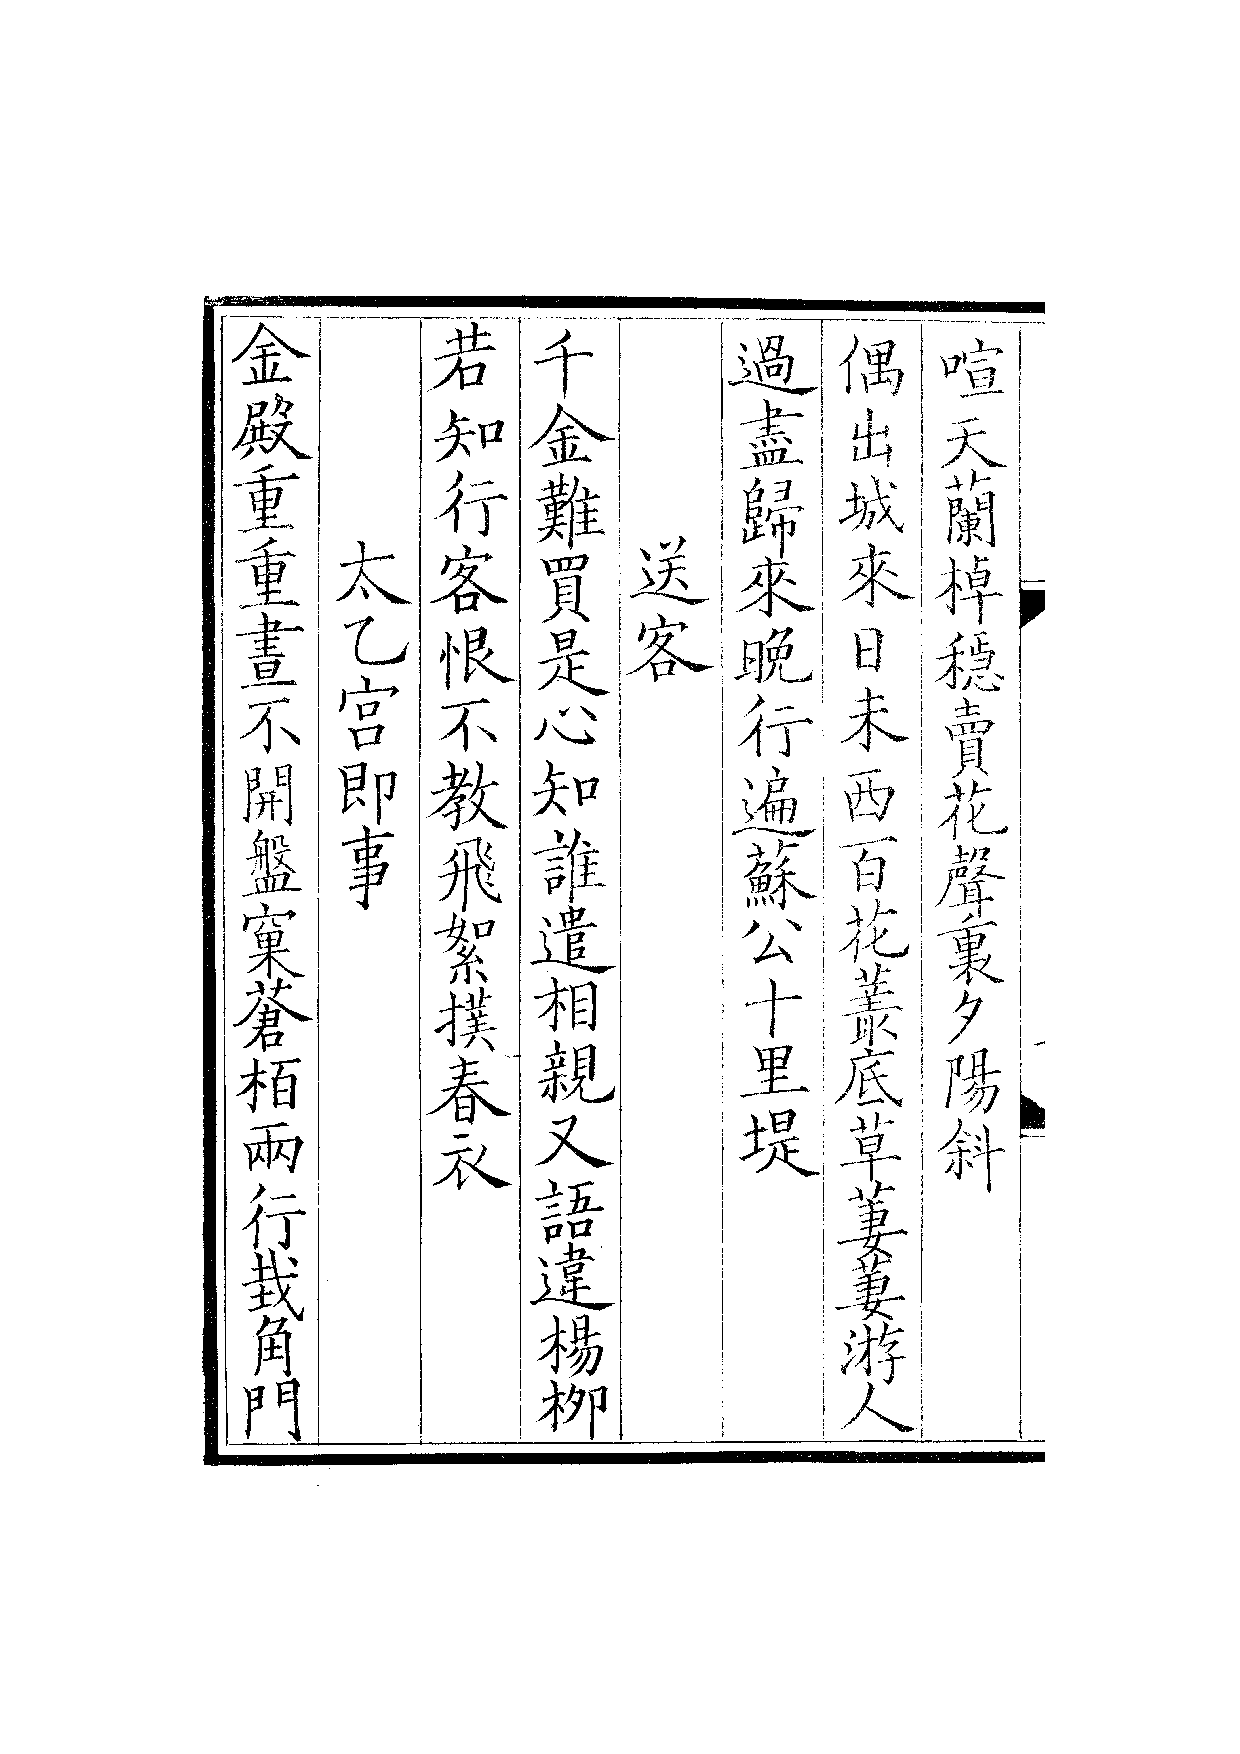 喧天蘭棹穩賣花聲裏夕陽斜
偶出城來日未西百花叢底草萋萋游人
過盡歸來晚行遍蘇公十里堤
送客
千金難買是心知誰遣相親又語違楊柳
若知行客恨不教飛絮撲春衣
太乙宮即事
金殿重重晝不開盤窠蒼栢兩行栽角門